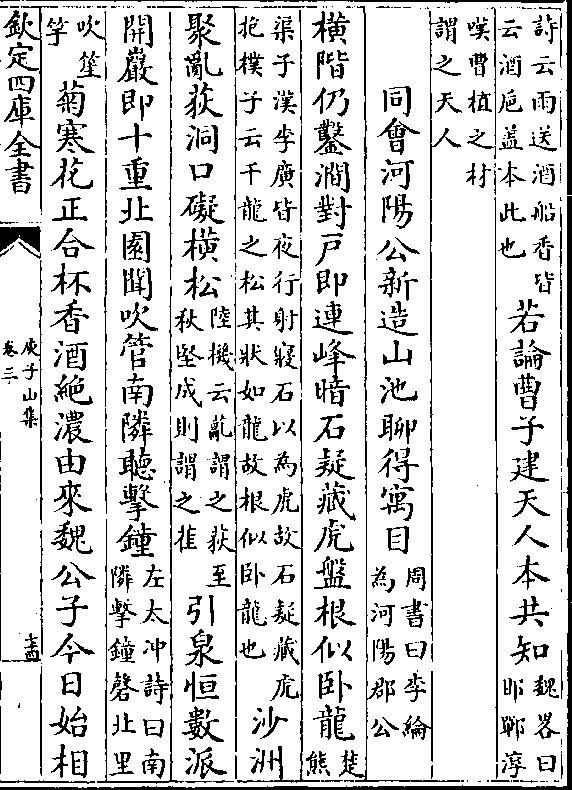 詩云雨送酒船香皆
云酒巵盖本此也
若論曹子建天人本共知
魏畧曰
邯鄲淳
嘆曹植之材
謂之天人
同會河陽公新造山池聊得寓目
周書曰李綸
為河陽郡公
橫階仍鑿澗對戸即連峰暗石疑藏虎盤根似卧龍
楚
熊
渠子漢李廣皆夜行射寢石以為虎故石疑藏虎
抱樸子云千龍之松其狀如龍故根似卧龍也
沙洲
聚亂荻洞口礙橫松
陸機云薍謂之荻至
秋堅成則謂之萑
引泉恒數派
開巖即十重北園聞吹管南隣聽擊鐘
左太冲詩曰南
隣擊鐘磬北里
吹笙
竽
菊寒花正合杯香酒絶濃由來魏公子今日始相
欽定四庫全書
庾子山集
卷三